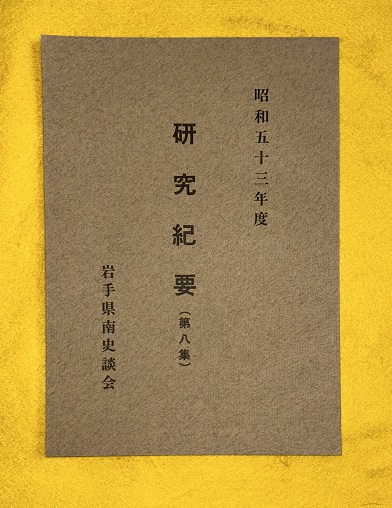 昭和五十三年度
研究紀要（第八集）
岩手県南史談会